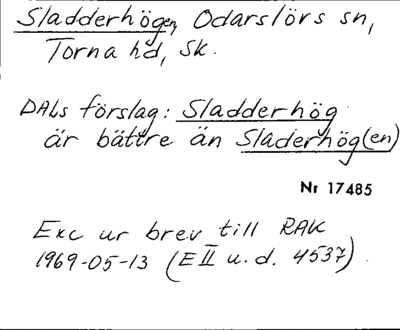 Sladderhögen, Odarslövs sn,
Torna hd, Sk.
DALs förslag: Sladderhög
är bättre än Sladerhög(en)
Nr 17485
Exc ur brev till RAK
1969-05-13 (E II u.d. 4537).